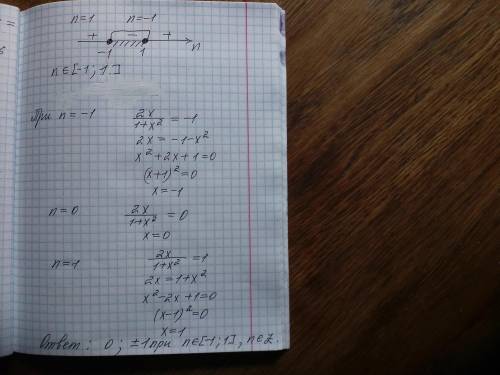 n=1 n=-1
+ - +
-1 1 n
n∈[-1; 1]
При n=-1 2x/(1+x²) = -1
2x = -1-x²
x²+2x+1=0
(x+1)²=0
x=-1
n=0 2x/(1+x²) = 0
x=0
n=1 2x/(1+x²) = 1
2x=1+x²
x²-2x+1=0
(x-1)²=0
x=1
Ответ: 0; ±1 при n∈[-1;1], n∈Z.